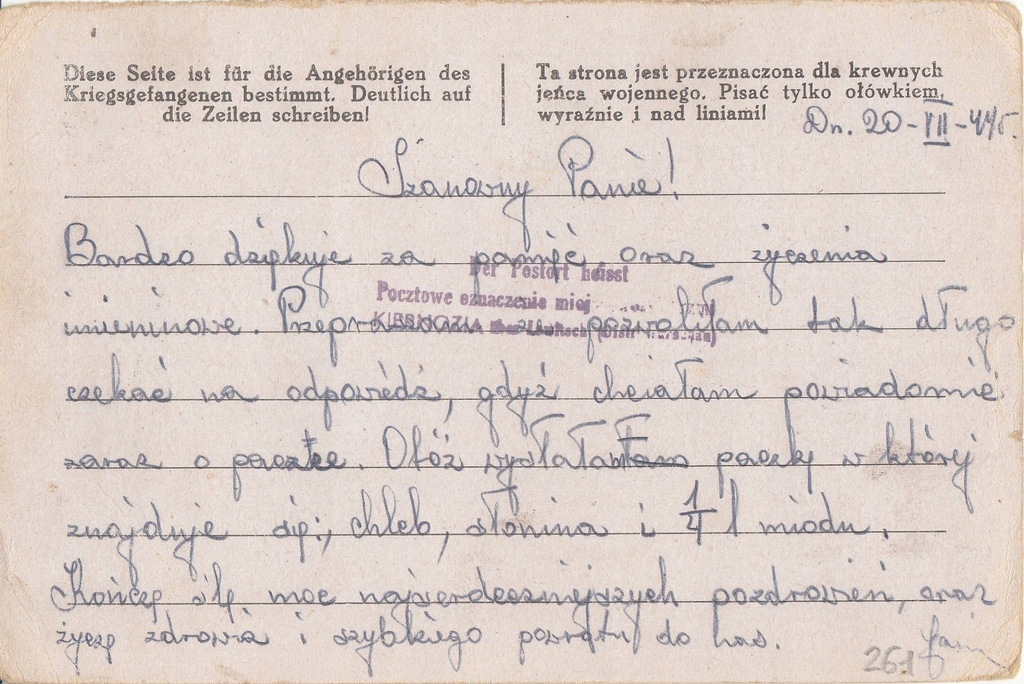 Diese Seite ist für die Angehörigen des
Kriegsgefangenen bestimmt. Deutlich auf
die Zeilen schreiben!
Ta strona jest przeznaczona dla krewnych
jeńca wojennego. Pisać tylko ołówkiem,
wyraźnie i nad liniami!
Dn. 20-III-44r.
Szanowny Panie!
Bardzo dziękuje za pamięć oraz życzenia
Der Postort heisst
Pocztowe oznaczenie miej
imieninowe. Przepraszam że pozwoliłam tak długo
KIERNOZIA über
czekać na odpowiedź, gdyż chciałam powiadomić
zaraz o paczce. Otóż wysłałam paczkę w której
znajduje się:, chleb, słonina i 1/4 l miodu.
Kończę ślę moc najserdeczniejszych pozdrowień, oraz
życzę zdrowia i szybkiego powrotu do nas.
261